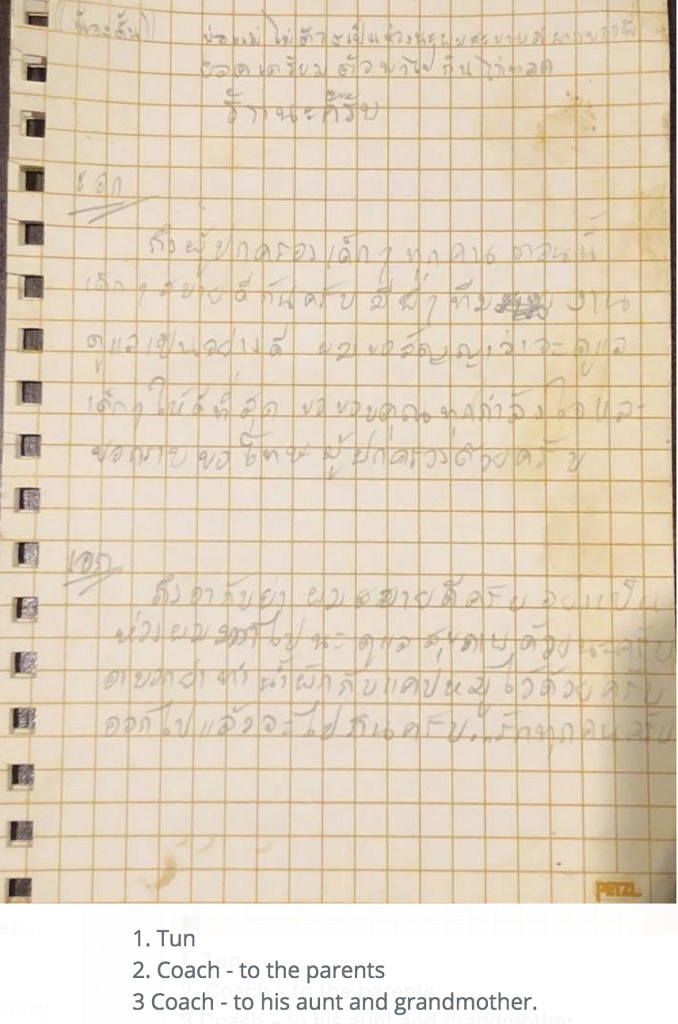 พ่อแม่ไม่ต้องเป็นห่วงนะผมสบายดี
เตรียมตัวพาไปกินไก่ทอด
ด้วยนะครับ
เอก
ถึงผู้ปกครองเด็กๆทุกคน ตอนนี้
เด็กๆสบายดีกันครับ มีพี่ๆทีมงาน
ดูแลเป็นอย่างดี ผมขอสัญญาว่าจะดูแล
เด็กๆให้ดีที่สุด ขอขอบคุณทุกกำลังใจและ
ขอกราบขอโทษผู้ปกครองด้วยครับ
เอก
ถึงอากับย่า ผมสบายดีครับ อย่าเป็น
ห่วงผมมากไปนะ ดูแลสุขภาพด้วยนะครับ
อาบอกย่าทำน้ำผักกับแคปหมูไว้ด้วยครับ
ออกไปแล้วจะไปกินครับ..รักทุกคนครับ
PETZL
1. Tun
2. Coach - to the parents
3 Coach - to his aunt and grandmother.